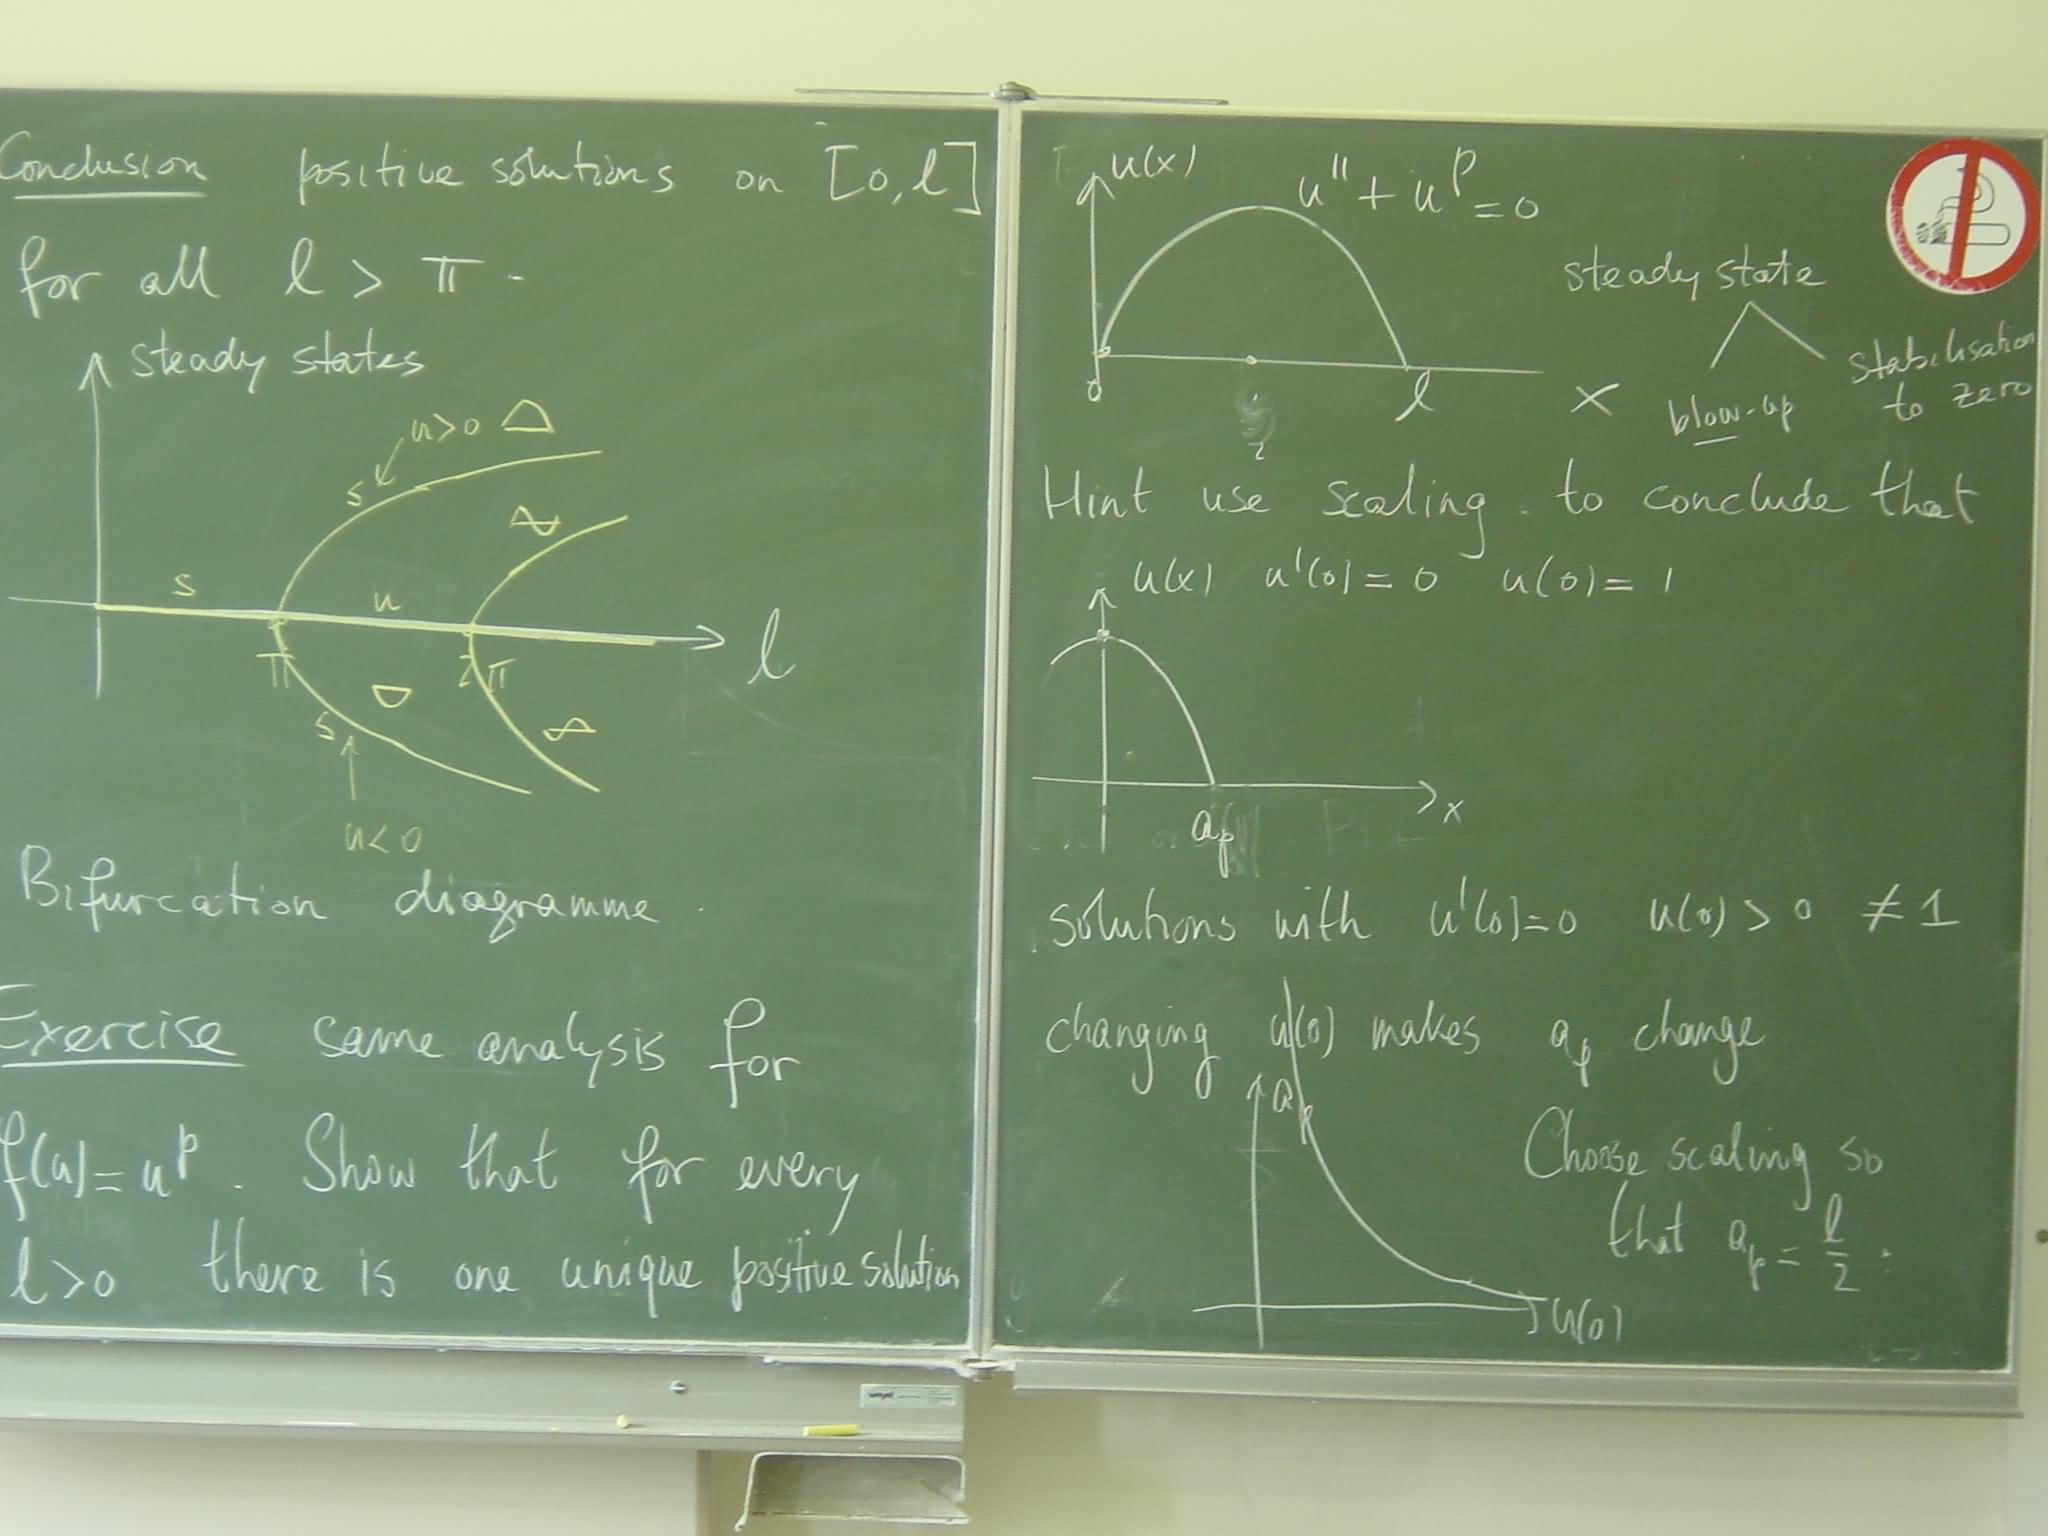 Conclusion positive solutions on [0, l]
for all l > π.
steady states
u>0
s
s
u
l
π
2π
s
u<0
Bifurcation diagramme.
Exercise same analysis for
f(u)=u^p. Show that for every
l>0 there is one unique positive solution
u(x)
u'' + u^p = 0
steady state
blow-up
stabilisation
to zero
0
l
x
2
Hint use scaling to conclude that
u(x) u'(0)=0 u(0)=1
a_p
x
solutions with u'(0)=0 u(0)>0 ≠1
changing u(0) makes a_p change
a_p
Choose scaling so
that a_p = l/2 :
u(0)